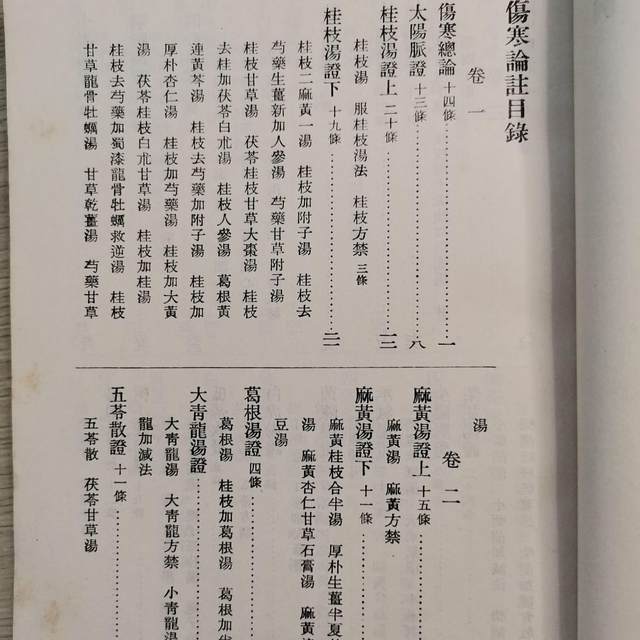 傷寒論註目錄
卷一
傷寒總論 十四條 一
太陽脈證 十三條 八
桂枝湯證上 二十條 一三
桂枝湯 服桂枝湯法 桂枝方禁 三條
桂枝湯證下 十九條 二一
桂枝二麻黃一湯 桂枝加附子湯 桂枝去
芍藥生薑新加人參湯 芍藥甘草附子湯
桂枝甘草湯 茯苓桂枝甘草大棗湯 桂枝
去桂加茯苓白朮湯 桂枝人參湯 葛根黃
連黃芩湯 桂枝去芍藥加附子湯 桂枝加
厚朴杏仁湯 桂枝加芍藥湯 桂枝加大黃
湯 茯苓桂枝白朮甘草湯 桂枝加桂湯
桂枝去芍藥加蜀漆龍骨牡蠣救逆湯 桂枝
甘草龍骨牡蠣湯 甘草乾薑湯 芍藥甘草
湯
卷二
麻黃湯證上 十五條
麻黃湯 麻黃方禁
麻黃湯證下 十一條
麻黃桂枝合半湯 厚朴生薑半夏
湯 麻黃杏仁甘草石膏湯 麻黃
豆湯
葛根湯證 四條
葛根湯 桂枝加葛根湯 葛根加半
大青龍湯證
大青龍湯 大青龍方禁 小青龍湯
龍加減法
五苓散證 十一條
五苓散 茯苓甘草湯